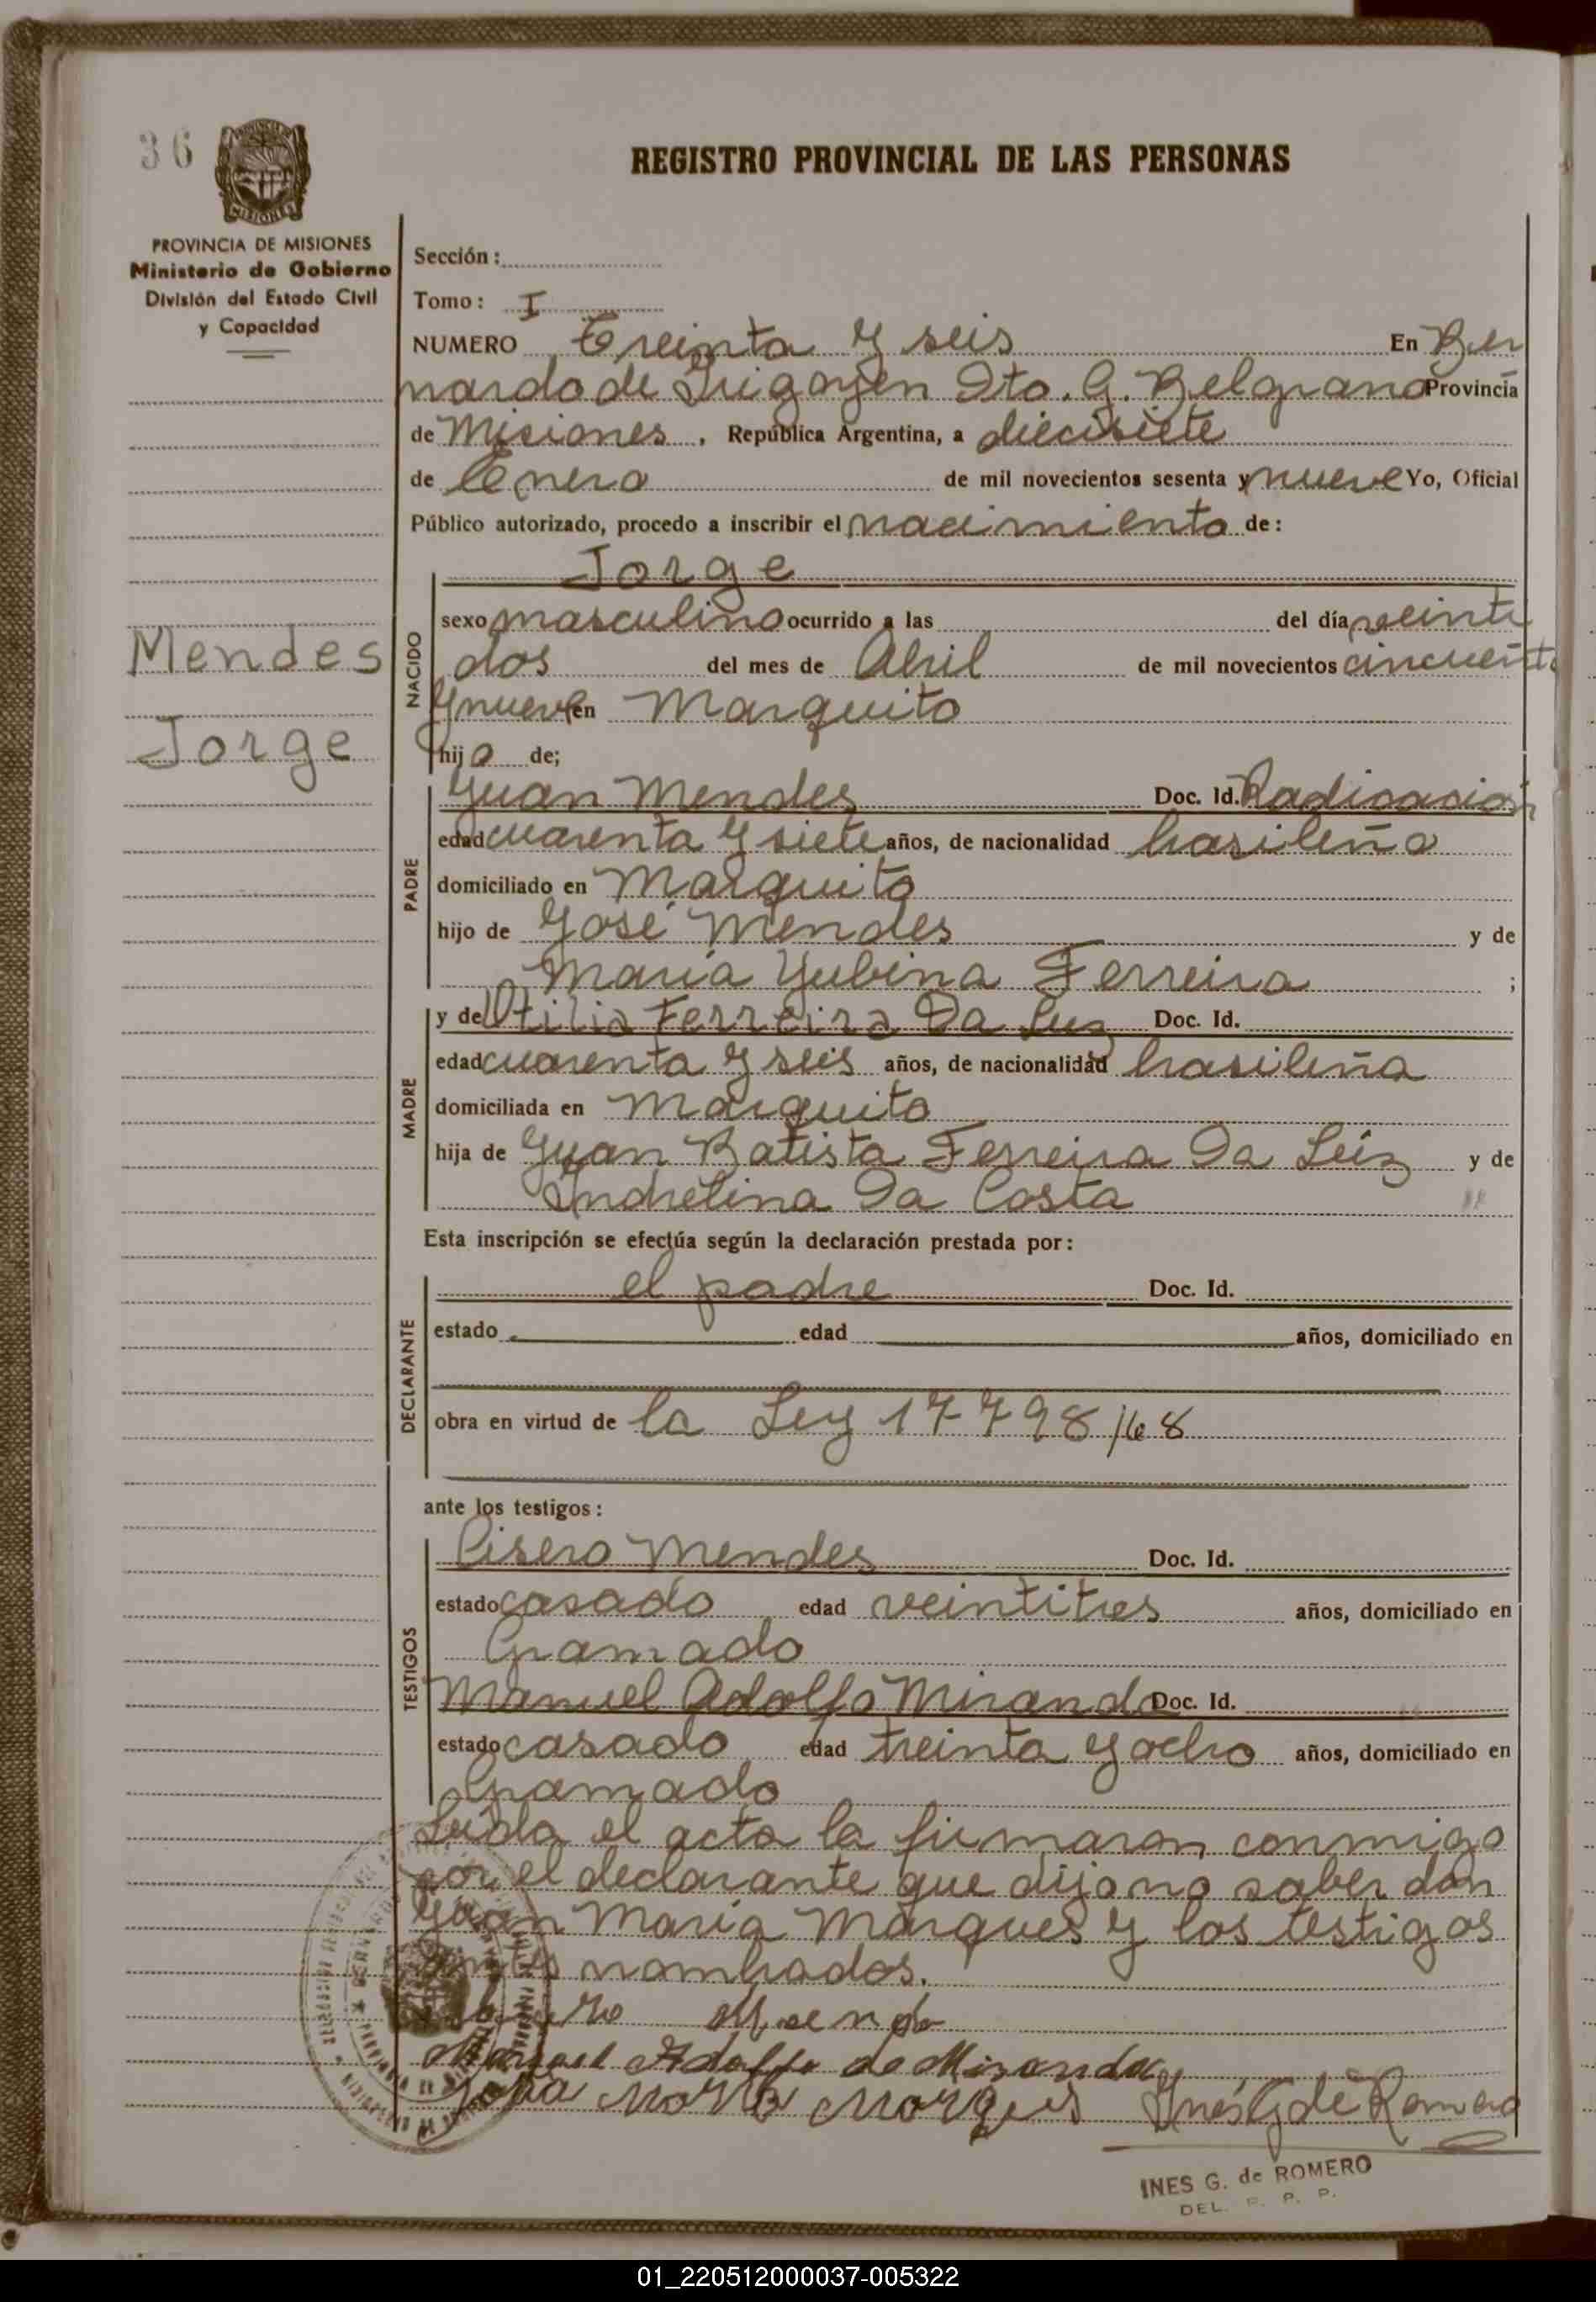 36
REGISTRO PROVINCIAL DE LAS PERSONAS
PROVINCIA DE MISIONES
Ministerio de Gobierno
División del Estado Civil
y Capacidad
Sección:
Tomo: I
NUMERO Treinta y seis En Ber
nardo de Irigoyen Dto. G. Belgrano Provincia
de Misiones, República Argentina, a diecisiete
de Enero de mil novecientos sesenta y nueve Yo, Oficial
Público autorizado, procedo a inscribir el nacimiento de:
Jorge
Mendes
Jorge
NACIDO
sexo masculino ocurrido a las del día veinti
dos del mes de Abril de mil novecientos cincuenta
y nueve en Marquito
hijo de;
PADRE
Juan Mendes Doc. Id. Radicación
edad cuarenta y siete años, de nacionalidad brasileño
domiciliado en Marquito
hijo de José Mendes y de
María Yubina Ferreira ;
MADRE
y de Otilia Ferreira Da Luz Doc. Id.
edad cuarenta y seis años, de nacionalidad brasileña
domiciliada en Marquito
hija de Juan Batista Ferreira Da Luz y de
Indrelina Da Costa
Esta inscripción se efectúa según la declaración prestada por:
DECLARANTE
el padre Doc. Id.
estado edad años, domiciliado en
obra en virtud de la Ley 17798/68
ante los testigos:
TESTIGOS
Cisero Mendes Doc. Id.
estado casado edad veintitres años, domiciliado en
Gramado
Manuel Adolfo Miranda Doc. Id.
estado casado edad treinta y ocho años, domiciliado en
Gramado
Leída el acta la firmaron conmigo
por el declarante que dijo no saber don
Juan María Marques y los testigos
antes nombrados.
Manuel Adolfo de Miranda
María Marques Inés G de Romero
INES G. de ROMERO
DEL. R. P. P.
01_220512000037-005322